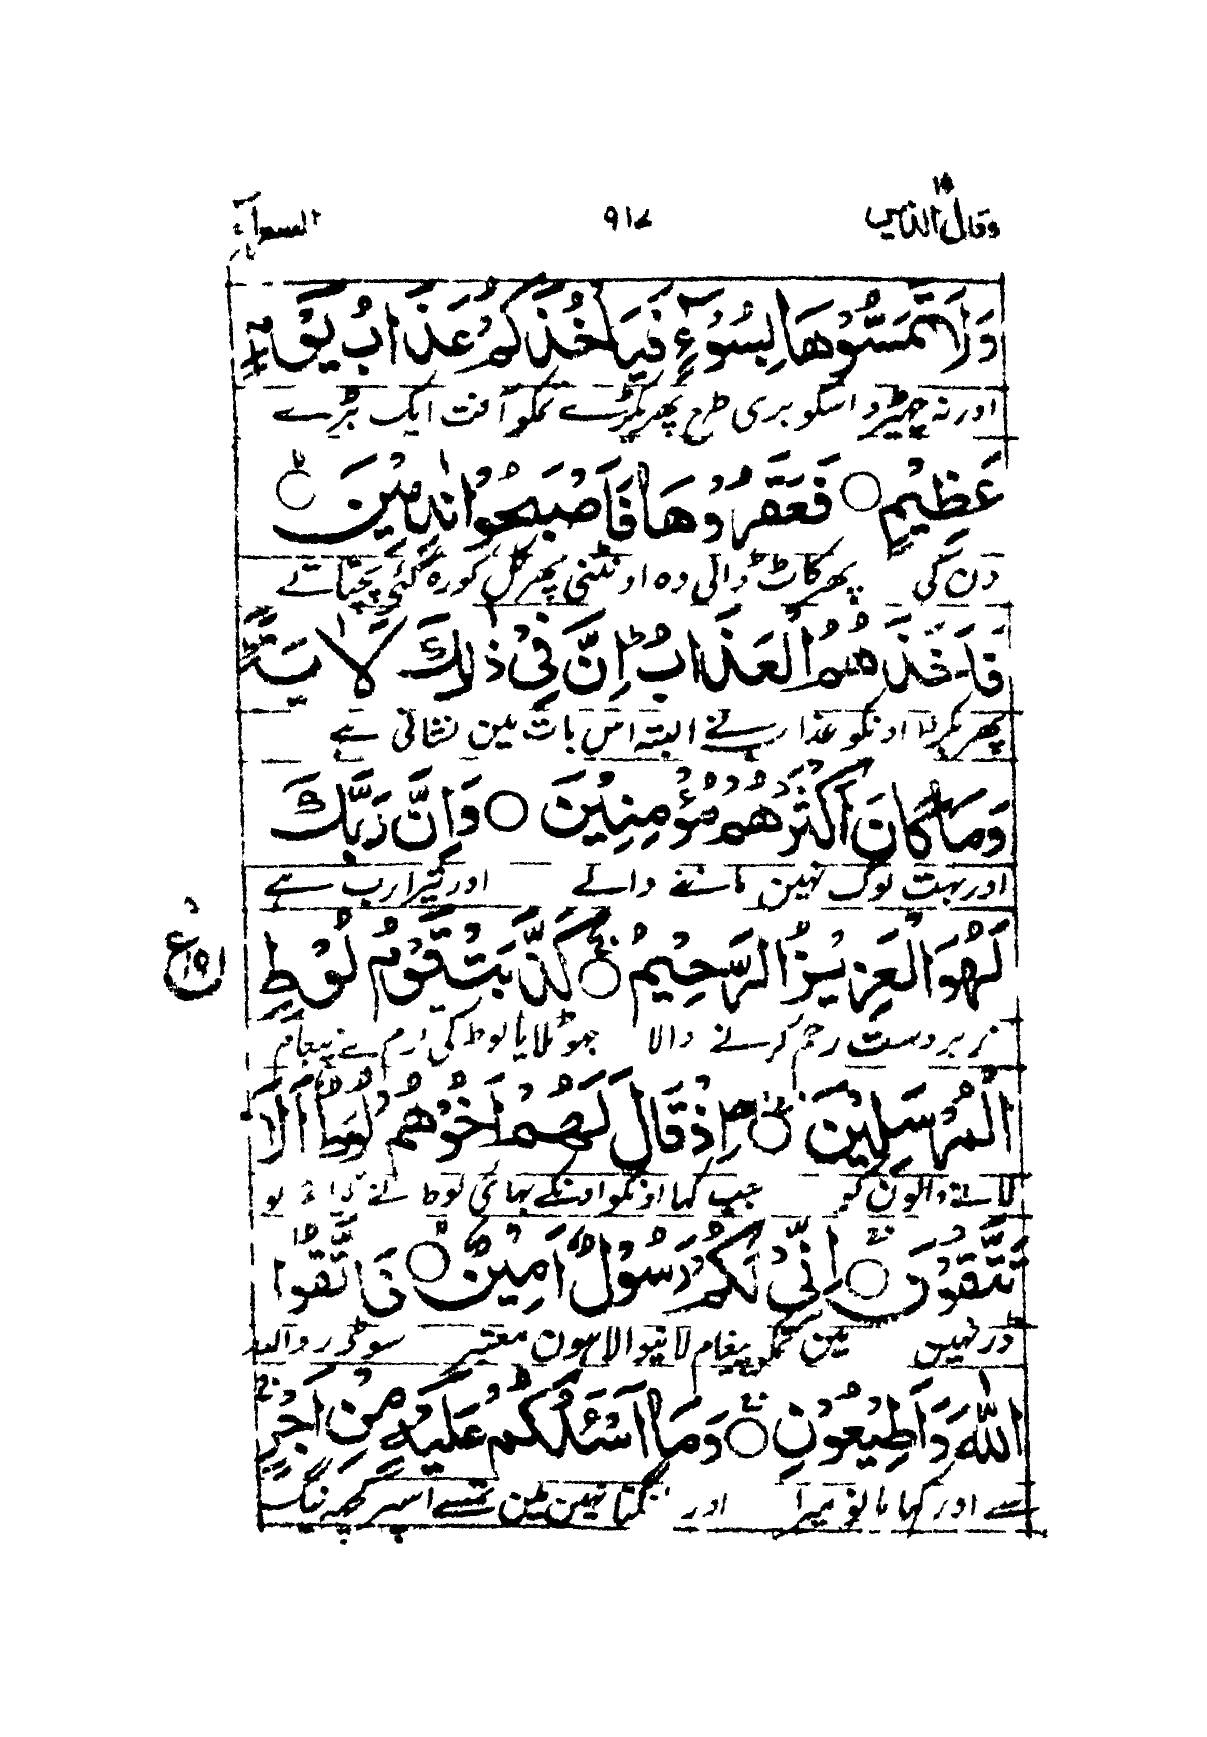 وقال الذین ١٩
٩١٧
الشعرآء
وَلَا تَمَسُّوْهَا بِسُوْٓءٍ فَيَاْخُذَكُمْ عَذَابُ يَوْمٍ
اور نہ چھیڑو اسکو بری طرح پھر پکڑے تمکو آفت ایک بڑے
عَظِيْمٍ ○ فَعَقَرُوْهَا فَاَصْبَحُوْا نٰدِمِيْنَ ○
دن کی پھر کاٹ ڈالی وہ اونٹنی پھر کل کو رہ گئے پچتاتے
فَاَخَذَهُمُ الْعَذَابُ ط اِنَّ فِيْ ذٰلِكَ لَاٰيَةً ط
پھر پکڑا اونکو عذاب نے البتہ اس بات مین نشانی ہے
وَمَا كَانَ اَكْثَرُهُمْ مُّؤْمِنِيْنَ ○ وَاِنَّ رَبَّكَ
اور بہت لوگ نہین ماننے والے اور تیرا رب ہے
لَهُوَ الْعَزِيْزُ الرَّحِيْمُ ○ كَذَّبَتْ قَوْمُ لُوْطِ
زبردست رحم کرنے والا جھوٹلایا لوط کی قوم نے پیغام
الْمُرْسَلِيْنَ ○ اِذْ قَالَ لَهُمْ اَخُوْهُمْ لُوْطٌ اَلَا
لانے والون کو جب کہا اونکو اونکے بھائی لوط نے کیا تو
تَتَّقُوْنَ ○ اِنِّيْ لَكُمْ رَسُوْلٌ اَمِيْنٌ ○ فَاتَّقُوا
ڈر نہین مین تمکو پیغام لانیوالا ہون معتبر سو ڈرو اللہ
اللّٰهَ وَاَطِيْعُوْنِ ○ وَمَا اَسْـَٔلُكُمْ عَلَيْهِ مِنْ اَجْرٍ
سے اور کہا مانو میرا اور مانگتا نہین مین تمسے اسپر کچھ نیگ